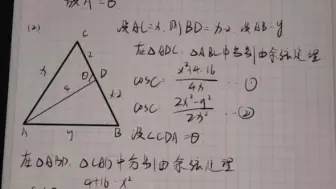 (2)
C
x
2
θ
D
4
x-2
A
y
B
设AC=x,则BD=x-2,设AB=y
在△ADC,△ABC中分别由余弦定理
cosC= x²+4-16 / 4x ……①
cosC= 2x²-y² / 2x² ……②
设∠CDA=θ
在△ABD,△CAD中分别由余弦定理
4+16-x²